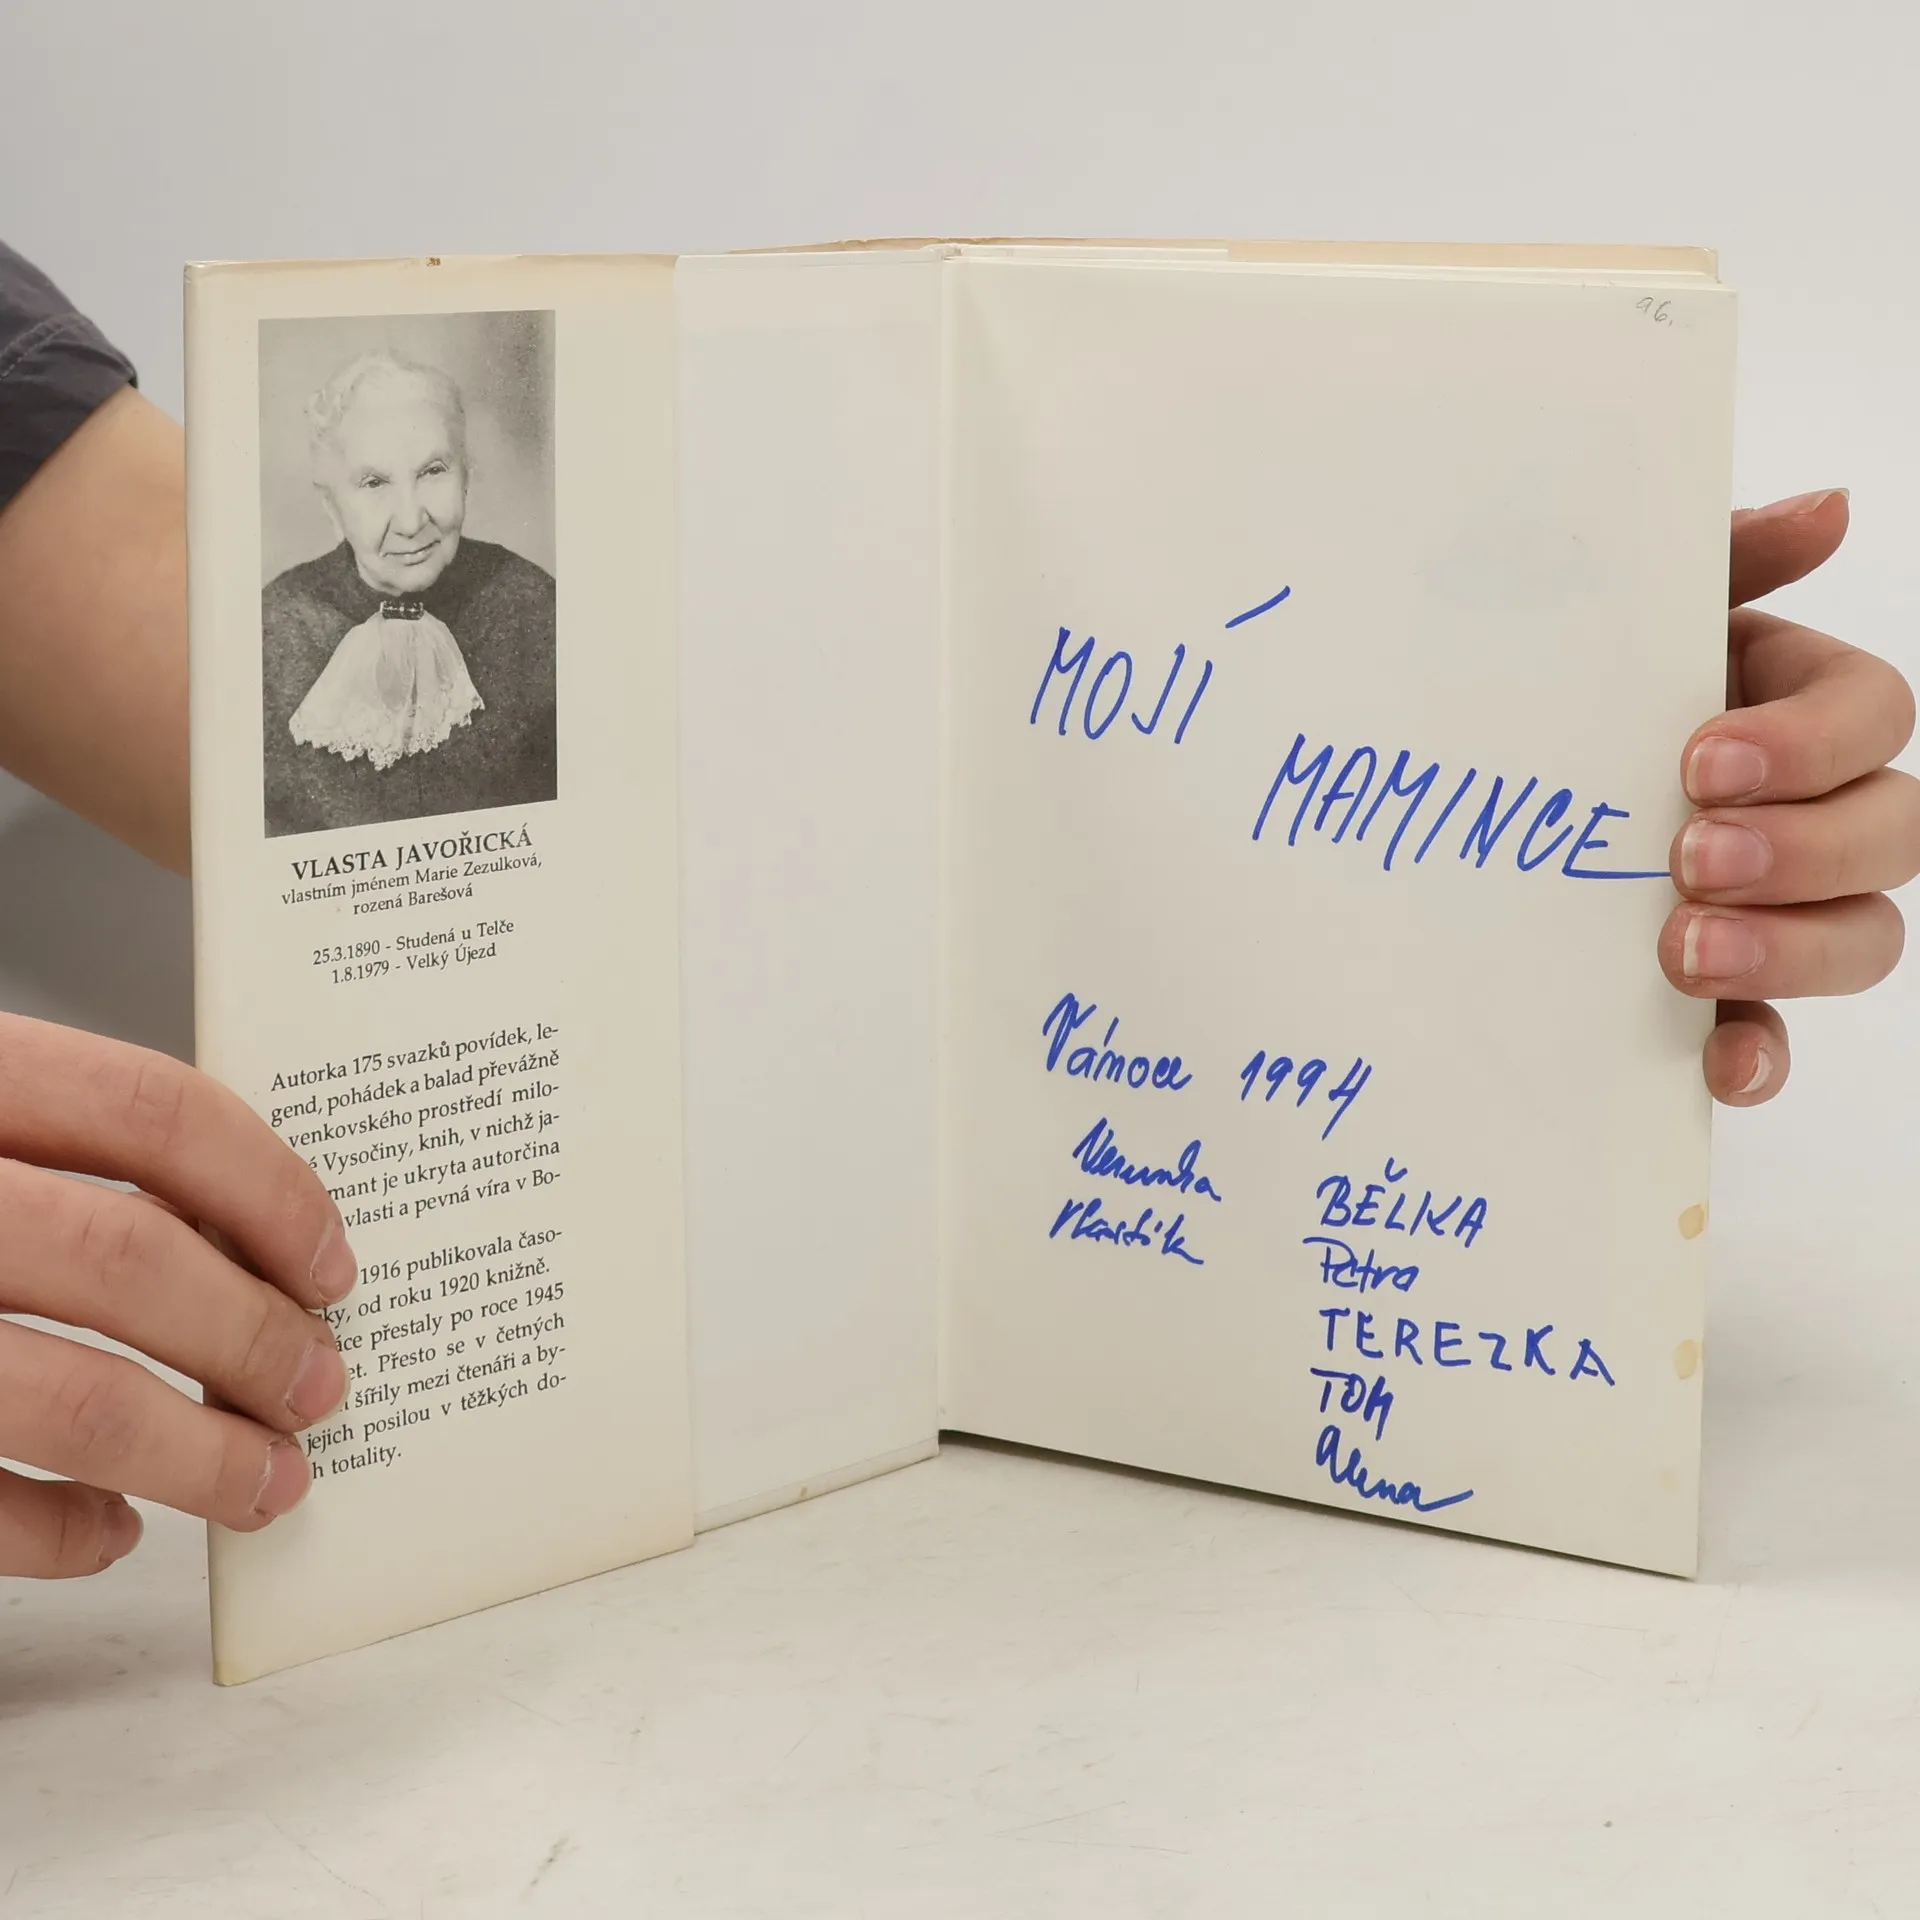 VLASTA JAVOŘICKÁ
vlastním jménem Marie Zezulková,
rozená Barešová
25.3.1890 - Studená u Telče
1.8.1979 - Velký Újezd
Autorka 175 svazků povídek, le-
gend, pohádek a balad převážně
venkovského prostředí milo-
é Vysočiny, knih, v nichž ja-
mant je ukryta autorčina
vlasti a pevná víra v Bo-
1916 publikovala časo-
ky, od roku 1920 knižně.
áce přestaly po roce 1945
et. Přesto se v četných
šířily mezi čtenáři a by-
jejich posilou v těžkých do-
h totality.
96.
MOJÍ
MAMINCE
Vánoce 1994
Verunka
Vlastík
BĚLKA
Petra
TEREZKA
TOM
Alena